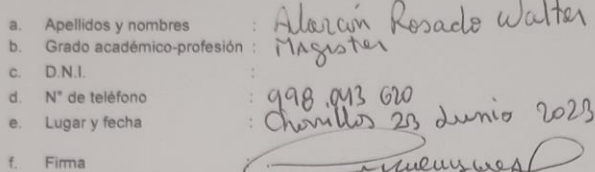 a. Apellidos y nombres : Alarcón Rosado Walter
b. Grado académico-profesión : Magister
c. D.N.I. :
d. N° de teléfono : 998.043 620
e. Lugar y fecha : Chorrillos 23 Junio 2023
f. Firma